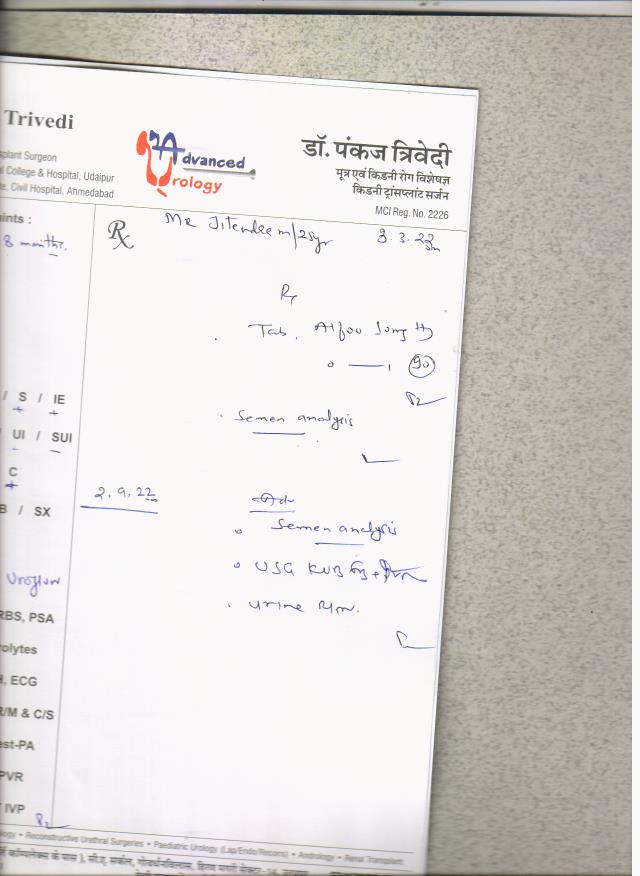 Trivedi
splant Surgeon
l College & Hospital, Udaipur
e, Civil Hospital, Ahmedabad
Advanced
Urology
डॉ. पंकज त्रिवेदी
मूत्र एवं किडनी रोग विशेषज्ञ
किडनी ट्रांसप्लांट सर्जन
MCI Reg. No. 2226
ints :
8 months.
Rx
Mr Jitendra m/25yr
3.3.22
Rx
Tab.
90
Semen analysis
/ S / IE
+ +
UI / SUI
- -
C
+
B / SX
2.9.22
Adv
Semen analysis
USG KUB + PVR
urine R/m.
Uroflow
RBS, PSA
rolytes
, ECG
R/M & C/S
est-PA
PVR
IVP
logy • Reconstructive Urethral Surgeries • Paediatric Urology (Lap/Endo/Recons) • Andrology • Renal Transplant